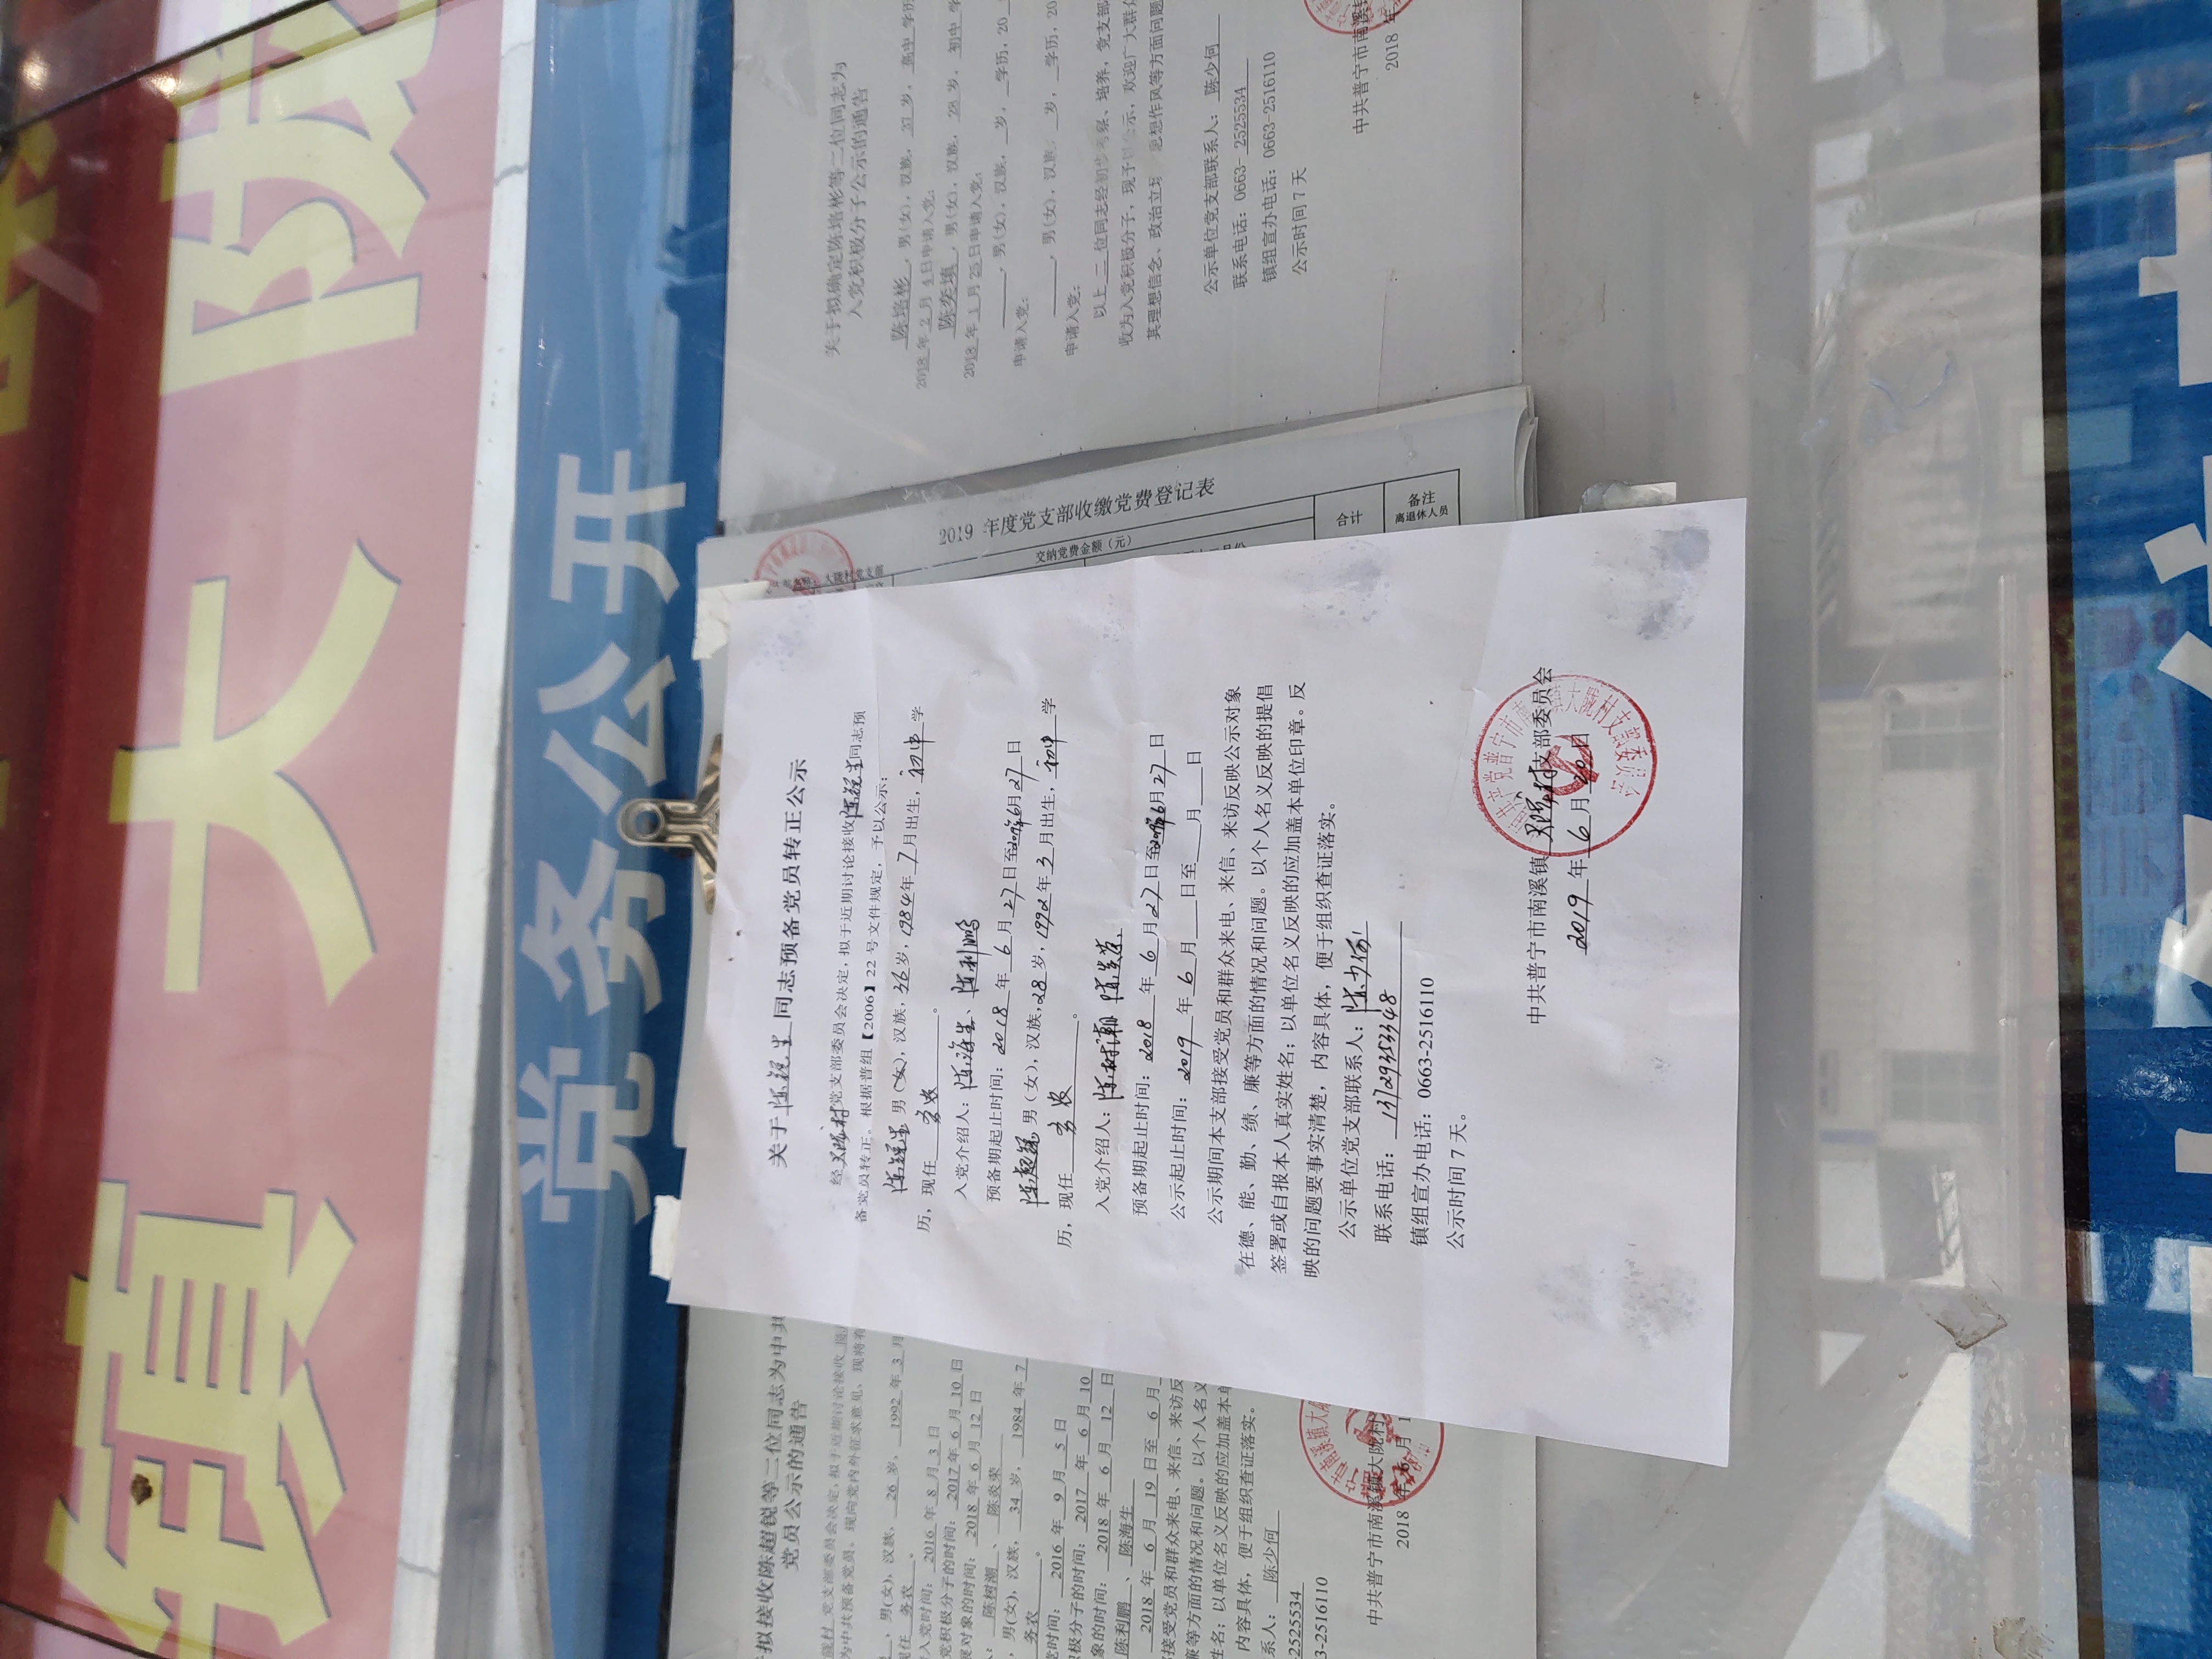 镇大陇
党务公开
关于陈锐生同志预备党员转正公示
经大陇村党支部委员会决定，拟于近期讨论接收陈锐生同志预
备党员转正。根据普组【2006】22号文件规定，予以公示：
陈锐生 男（女），汉族，36岁，1984年7月出生，初中学
历，现任务农。
入党介绍人：陈海生、陈利鹏
预备期起止时间：2018年6月27日至2019年6月27日
陈超锐，男（女），汉族，28岁，1992年3月出生，初中学
历，现任务农。
入党介绍人：陈树潮 陈炎荣
预备期起止时间：2018年6月27日至2019年6月27日
公示起止时间：2019年6月 日至 月 日
公示期间本支部接受党员和群众来电、来信、来访反映公示对象
在德、能、勤、绩、廉等方面的情况和问题。以个人名义反映的提倡
签署或自报本人真实姓名；以单位名义反映的应加盖本单位印章。反
映的问题要事实清楚，内容具体，便于组织查证落实。
公示单位党支部联系人：陈少何
联系电话：13729353348
镇组宣办电话：0663-2516110
公示时间7天。
中共普宁市南溪镇大陇村支部委员会
2019年6月20日
拟接收陈超锐等二位同志为中共
党员公示的通告
陇村党支部委员会决定，拟于近期讨论接收
为中共预备党员。现向党内外征求意见，现将
，男(女)，汉族，26岁，1992年3月
现任务农。
入党时间：2016年8月3日
党积极分子的时间：2017年6月10日
展对象的时间：2018年6月12日
：陈树潮、陈炎荣
，男(女)，汉族，34岁，1984年7
务农。
党时间：2016年9月5日
极分子的时间：2017年6月10
象的时间：2018年6月12日
陈利鹏、陈海生
2018年6月19日至6月
接受党员和群众来电、来信、来访反
廉等方面的情况和问题。以个人名义
姓名；以单位名义反映的应加盖本单
内容具体，便于组织查证落实。
系人：陈少何
2525534
3-2516110
中共普宁市南溪镇大陇村
2018年6月1
2019 年度党支部收缴党费登记表
大陇村党支部
交纳党费金额（元）
合计
备注
离退休人员
关于拟确定陈培彬等二位同志为
入党积极分子公示的通告
陈培彬，男(女)，汉族，31岁，高中学历
2018年2月4日申请入党；
陈奕填，男(女)，汉族，28岁，初中学
2018年1月25日申请入党；
，男(女)，汉族， 岁， 学历，20
申请入党；
，男(女)，汉族， 岁， 学历，20
申请入党；
以上二位同志经初步考察、培养，党支部
收为入党积极分子，现予以公示，欢迎广大群众
其理想信念、政治立场 思想作风等方面问题
公示单位党支部联系人：陈少何
联系电话：0663-2525534
镇组宣办电话：0663-2516110
公示时间7天
中共普宁市南溪镇
2018年